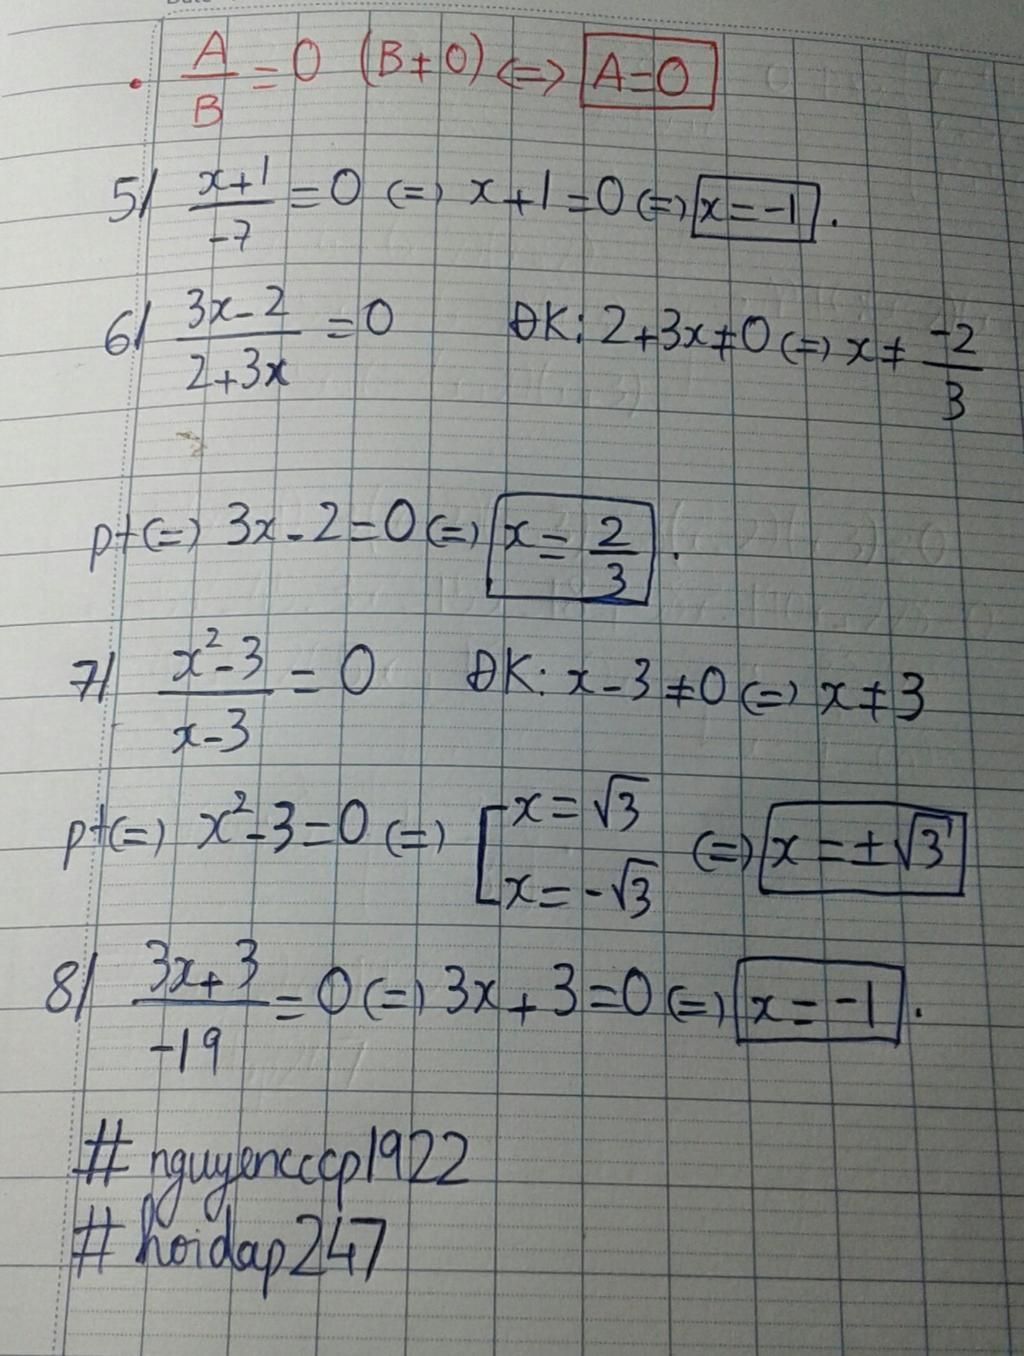 . A/B = 0 (B ≠ 0) <=> A = 0
5/ (x+1)/-7 = 0 (=) x+1 = 0 (=) x = -1.
6/ (3x-2)/(2+3x) = 0 ĐK: 2+3x ≠ 0 (=) x ≠ -2/3
pt (=) 3x-2 = 0 (=) x = 2/3.
7/ (x²-3)/(x-3) = 0 ĐK: x-3 ≠ 0 (=) x ≠ 3
pt (=) x²-3 = 0 (=) [x = √3 x = -√3 (=) x = ±√3
8/ (3x+3)/-19 = 0 (=) 3x+3 = 0 (=) x = -1.
# nguyencccp1922
# hoidap247